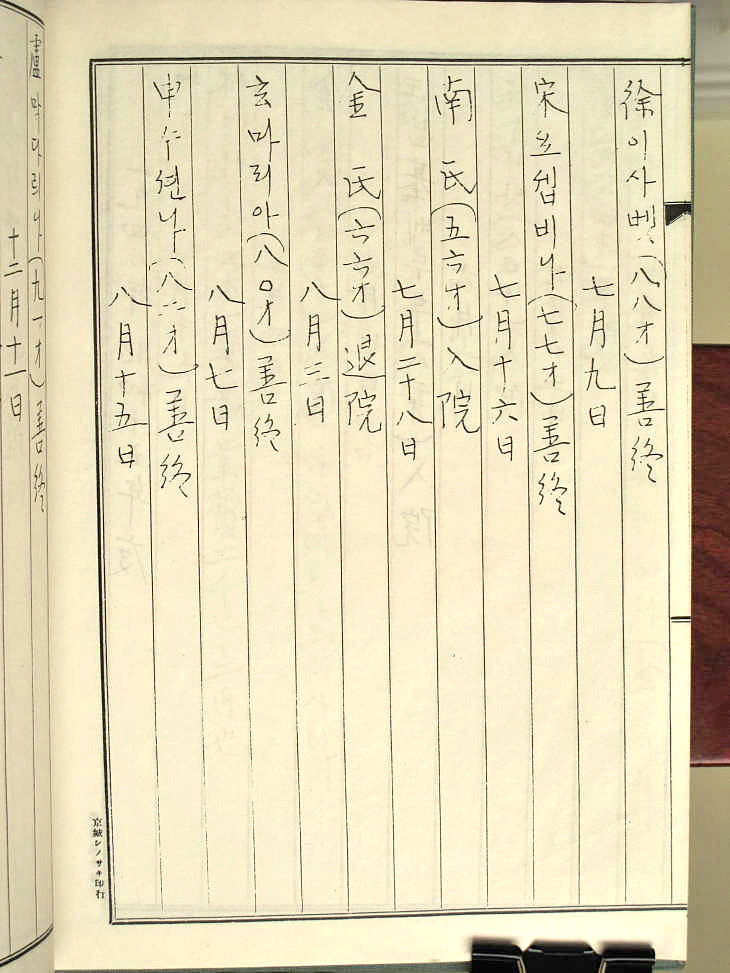 徐이사벳(八八才)善終
七月九日
宋요셉비나(七七才)善終
七月十六日
南 氏(五六才)入院
七月二十八日
金 氏(六六才)退院
八月三日
玄마리아(八〇才)善終
八月七日
申수산나(八一才)善終
八月十五日
盧막다리나(九一才)善終
十二月十一日
京城シノサキ印行